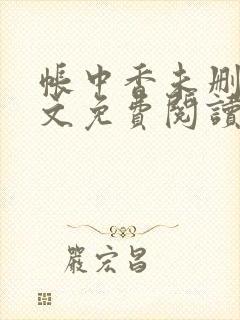 帳中香未刪
文免費閱讀
嚴宏昌